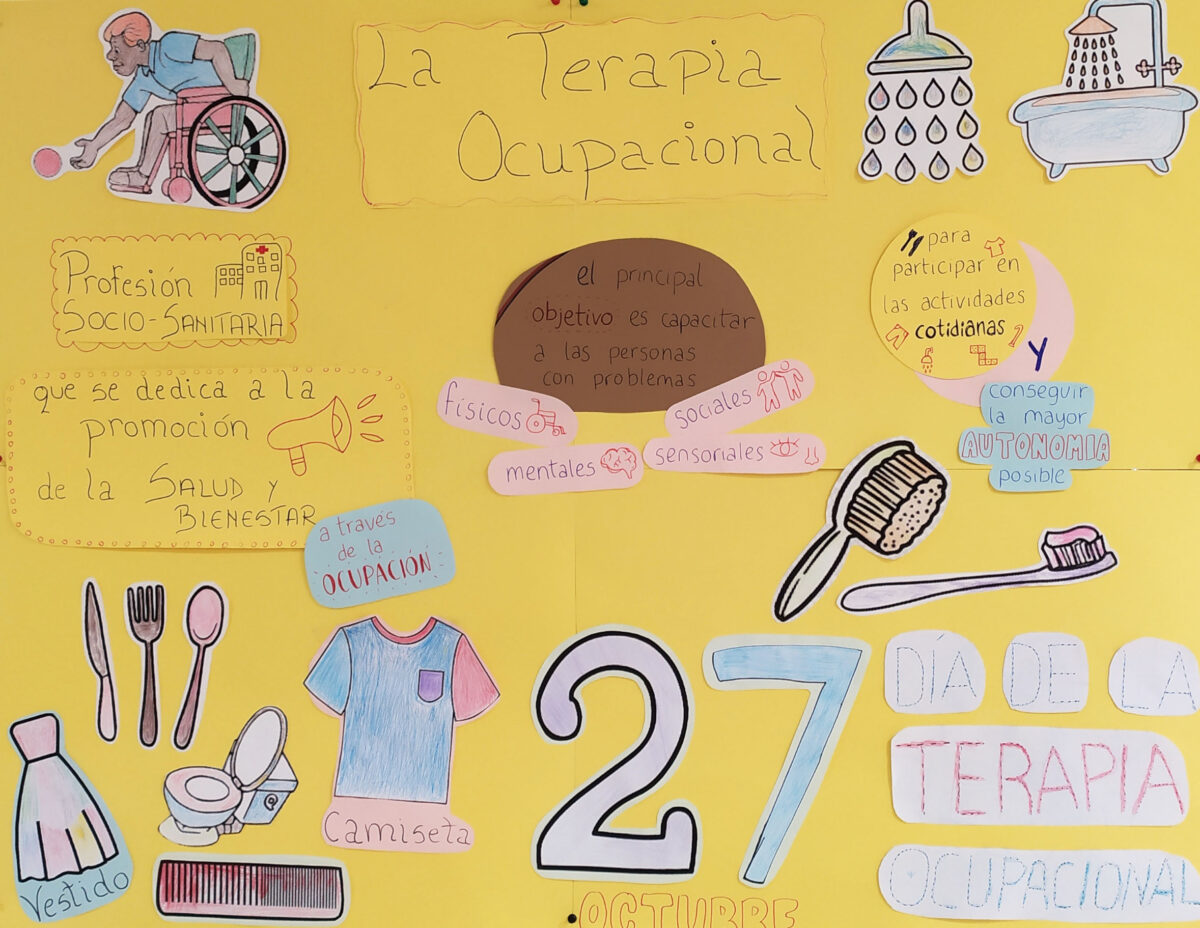 La Terapia
Ocupacional
Profesión
SOCIO-SANITARIA
que se dedica a la
promoción
de la SALUD y
BIENESTAR
a través
de la
OCUPACIÓN
el principal
objetivo es capacitar
a las personas
con problemas
físicos
sociales
mentales
sensoriales
para
participar en
las actividades
cotidianas
y
conseguir
la mayor
AUTONOMIA
posible
Vestido
Camiseta
27
OCTUBRE
DÍA DE LA
TERAPIA
OCUPACIONAL